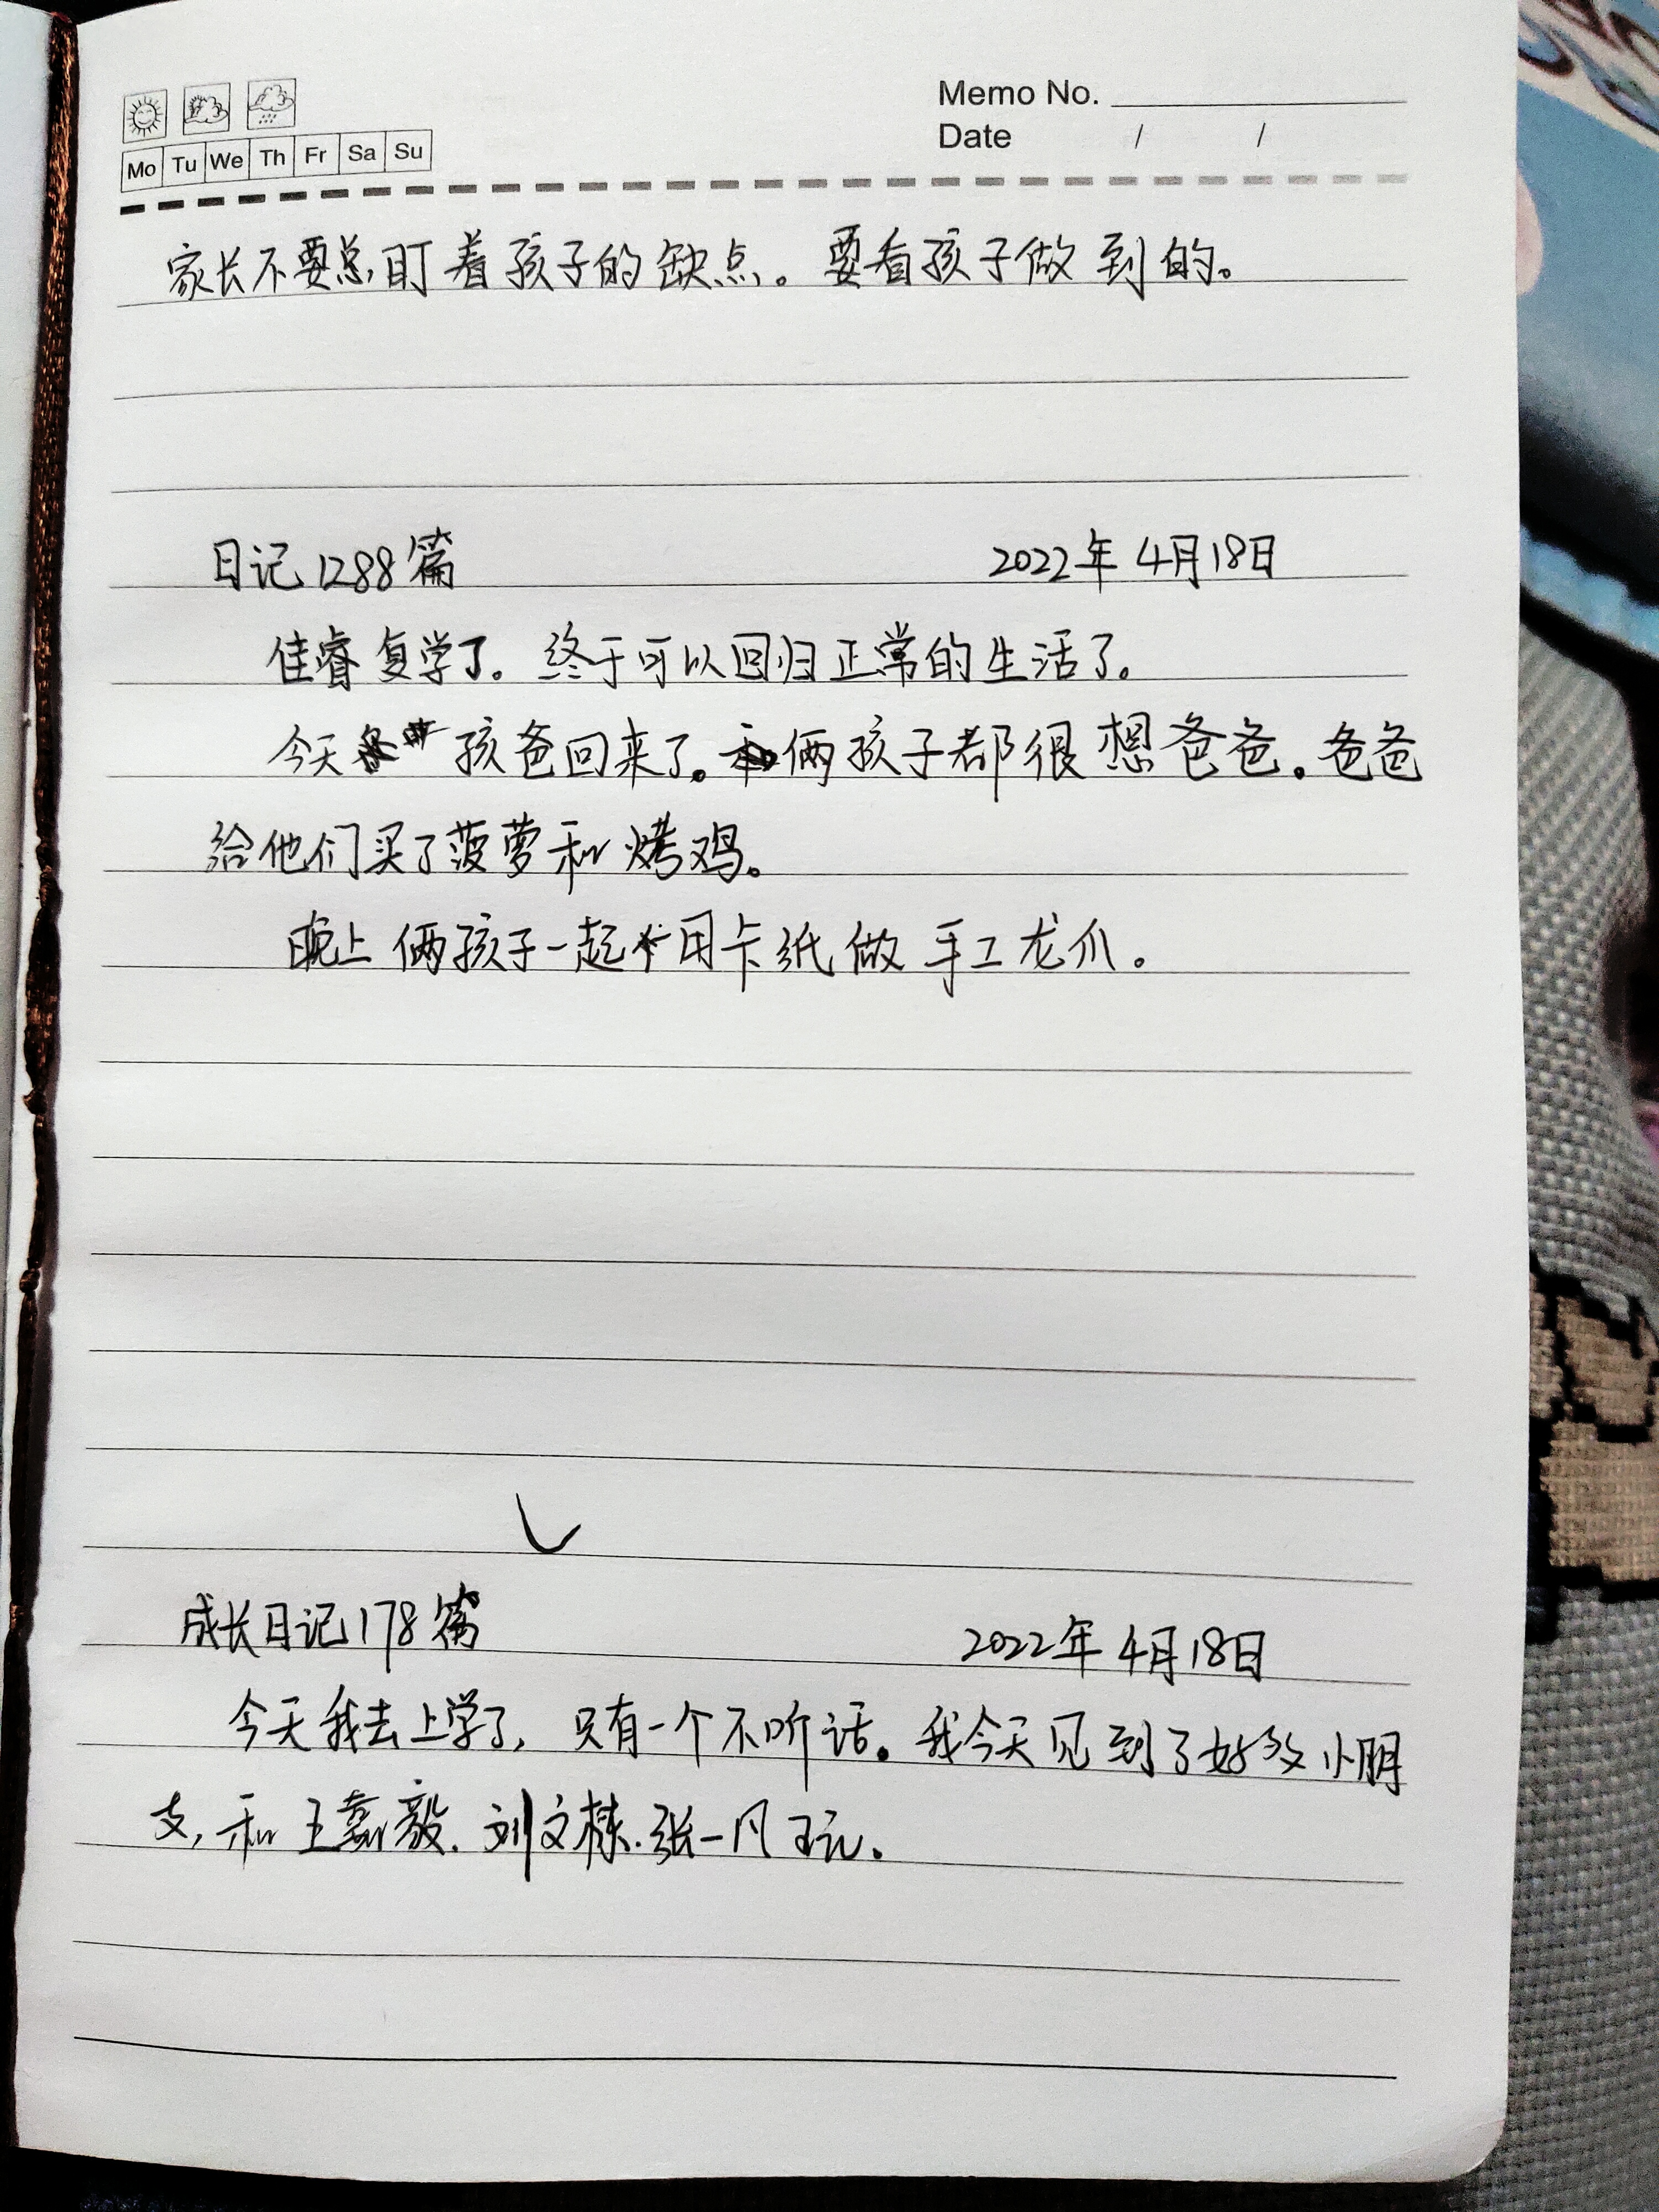 Memo No.
Mo Tu We Th Fr Sa Su
Date / /
家长不要总盯着孩子的缺点。要看孩子做到的。
日记1288篇 2022年4月18日
佳睿复学了。终于可以回归正常的生活了。
今天孩爸回来了。俩孩子都很想爸爸。爸爸
给他们买了菠萝和烤鸡。
晚上俩孩子一起用卡纸做手工龙爪。
成长日记178篇 2022年4月18日
今天我去上学了，只有一个不听话。我今天见到了好多小朋
友，和王嘉毅.刘文栋.张一凡玩。